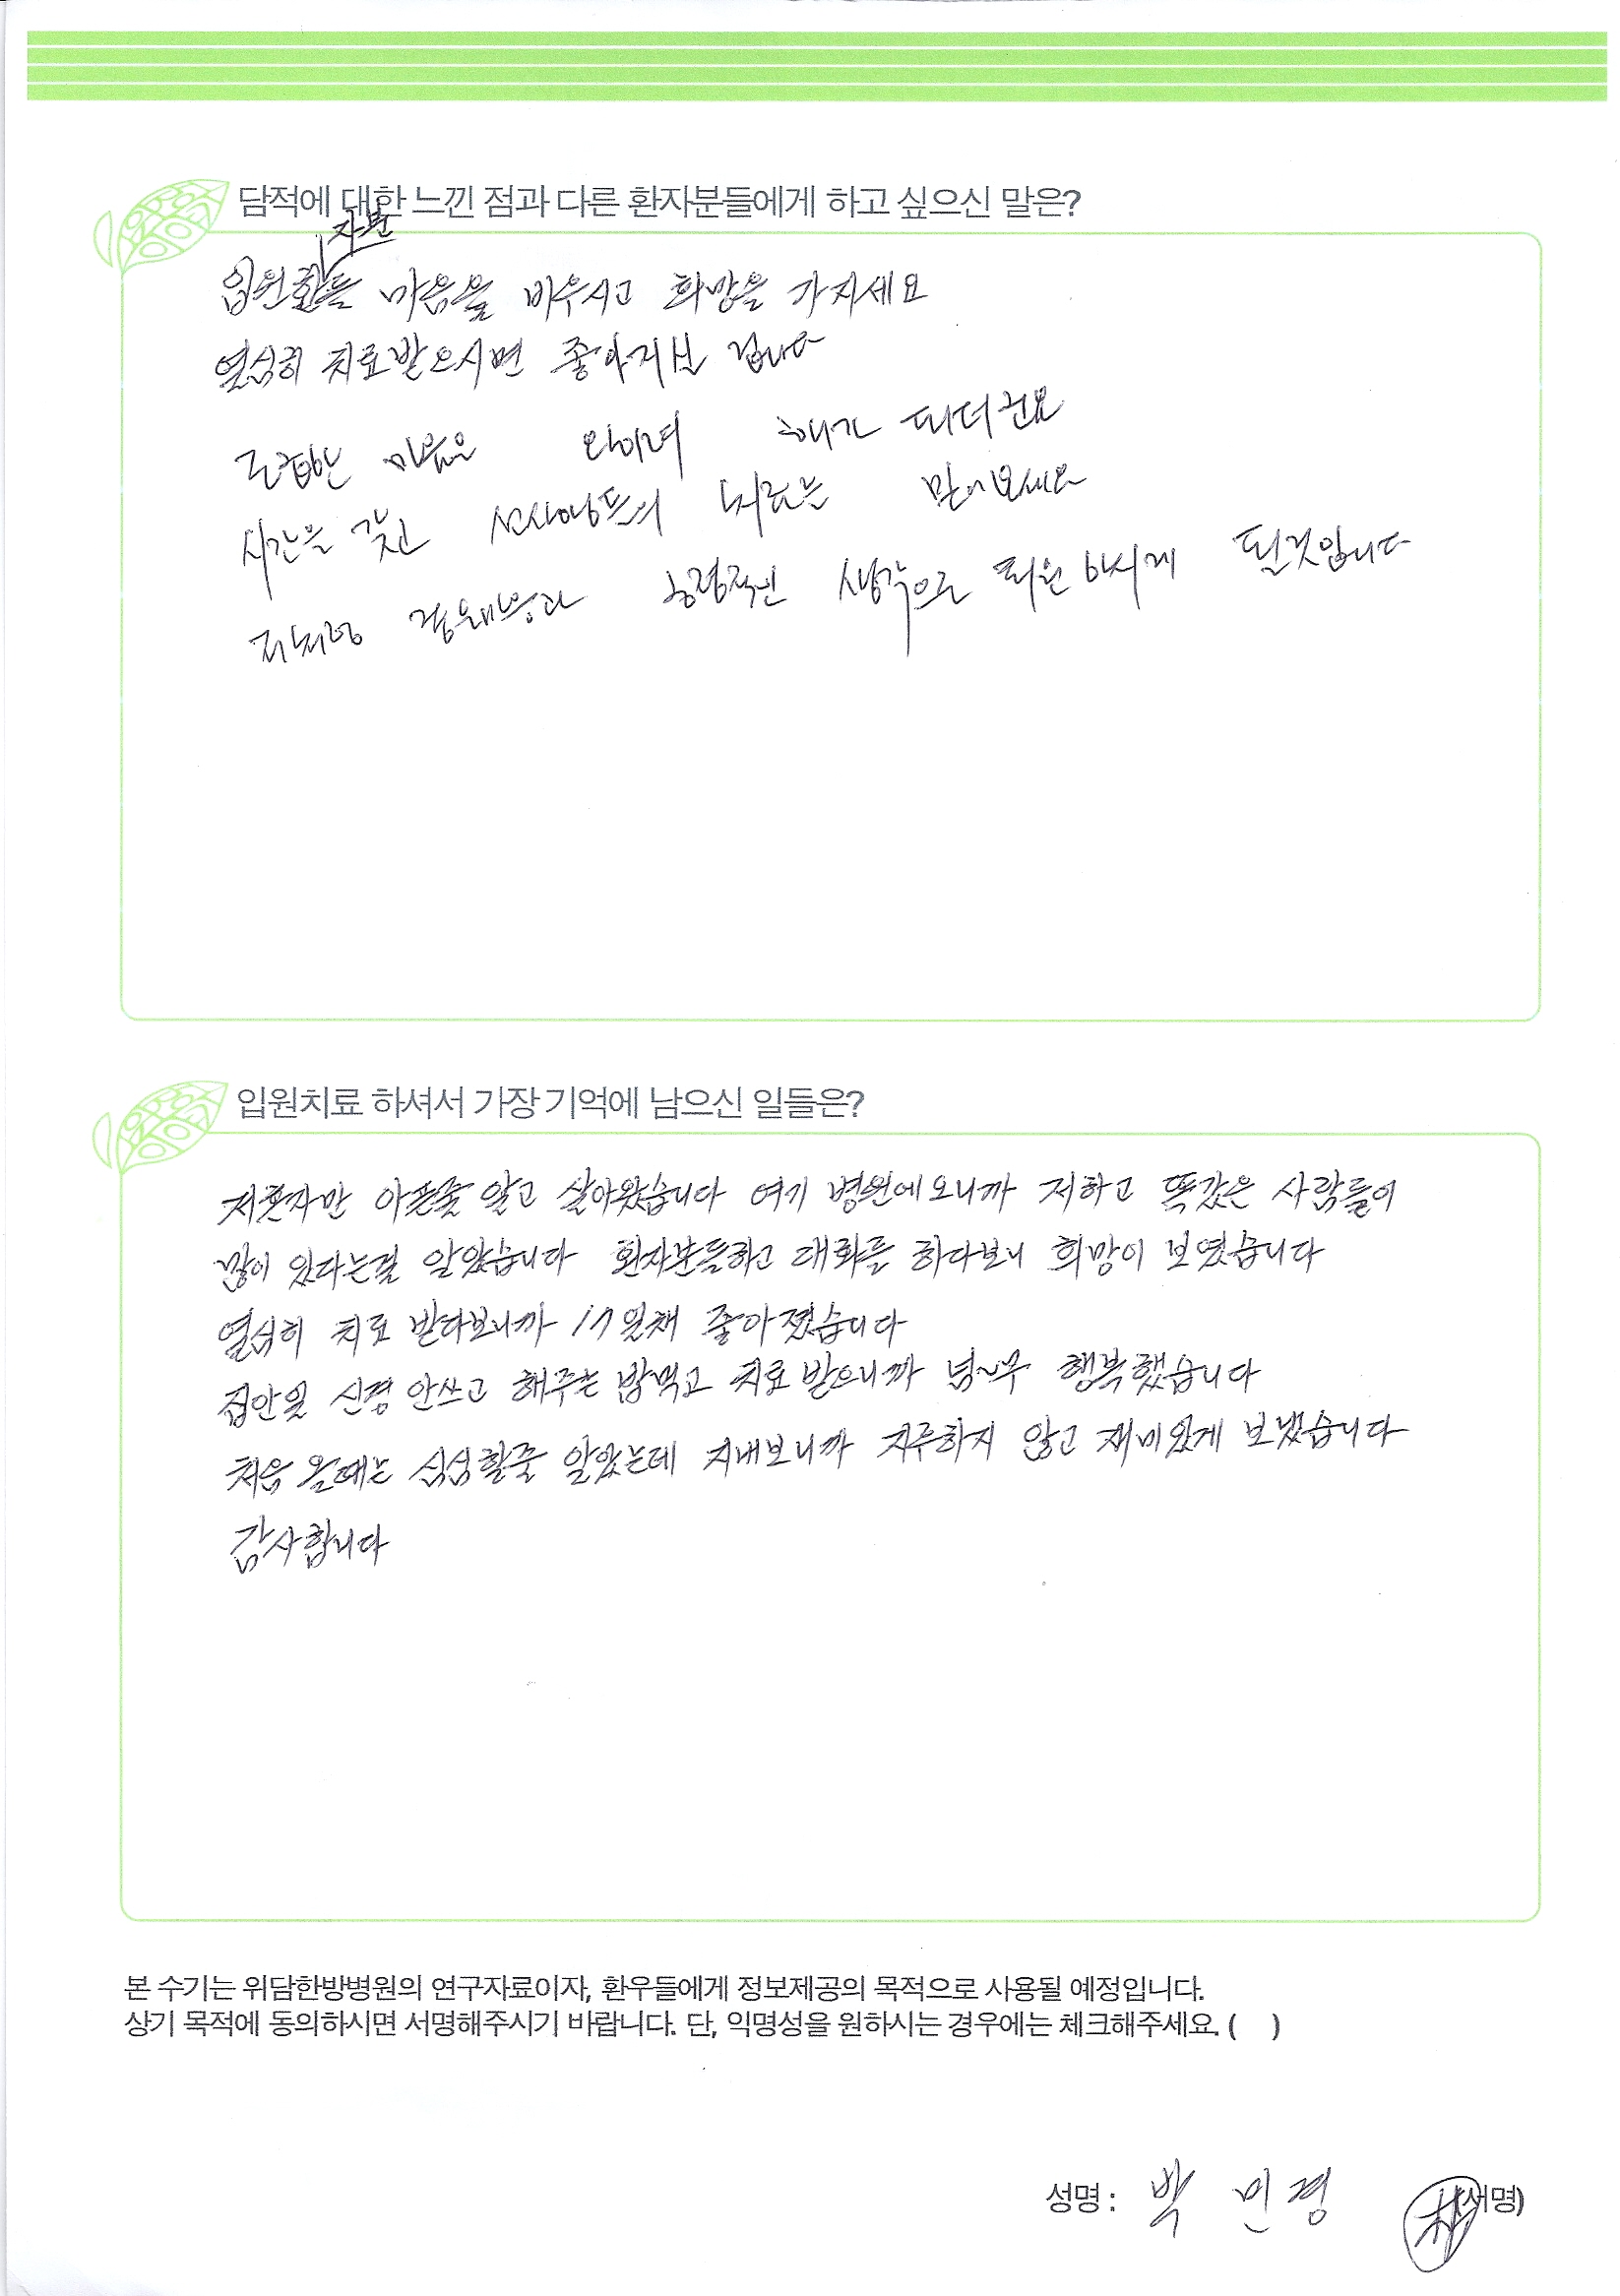 담적에 대한 느낀 점과 다른 환자분들에게 하고 싶으신 말은?
자분
입원환들 마음을 비우시고 희망을 가지세요
열심히 치료받으시면 좋아지실 겁니다
조급한 마음은 오히려 해가 되더군요
시간을 갖고 선생님들의 치료는 믿어보세요
긍정적인 생각으로 퇴원 하시게 될것입니다
입원치료 하셔서 가장 기억에 남으신 일들은?
저혼자만 아픈줄 알고 살아왔습니다 여기 병원에오니까 저하고 똑같은 사람들이
많이 있다는걸 알았습니다 환자분들하고 대화를 하다보니 희망이 보였습니다
열심히 치료 받다보니까 17일째 좋아졌습니다
집안일 신경 안쓰고 해주는 밥먹고 치료 받으니까 넘~무 행복했습니다
처음 올때는 심심할줄 알았는데 지내보니까 지루하지 않고 재미있게 보냈습니다
감사합니다
본 수기는 위담한방병원의 연구자료이자, 환우들에게 정보제공의 목적으로 사용될 예정입니다.
상기 목적에 동의하시면 서명해주시기 바랍니다. 단, 익명성을 원하시는 경우에는 체크해주세요. (    )
성명 : 박 민 경 (서명)